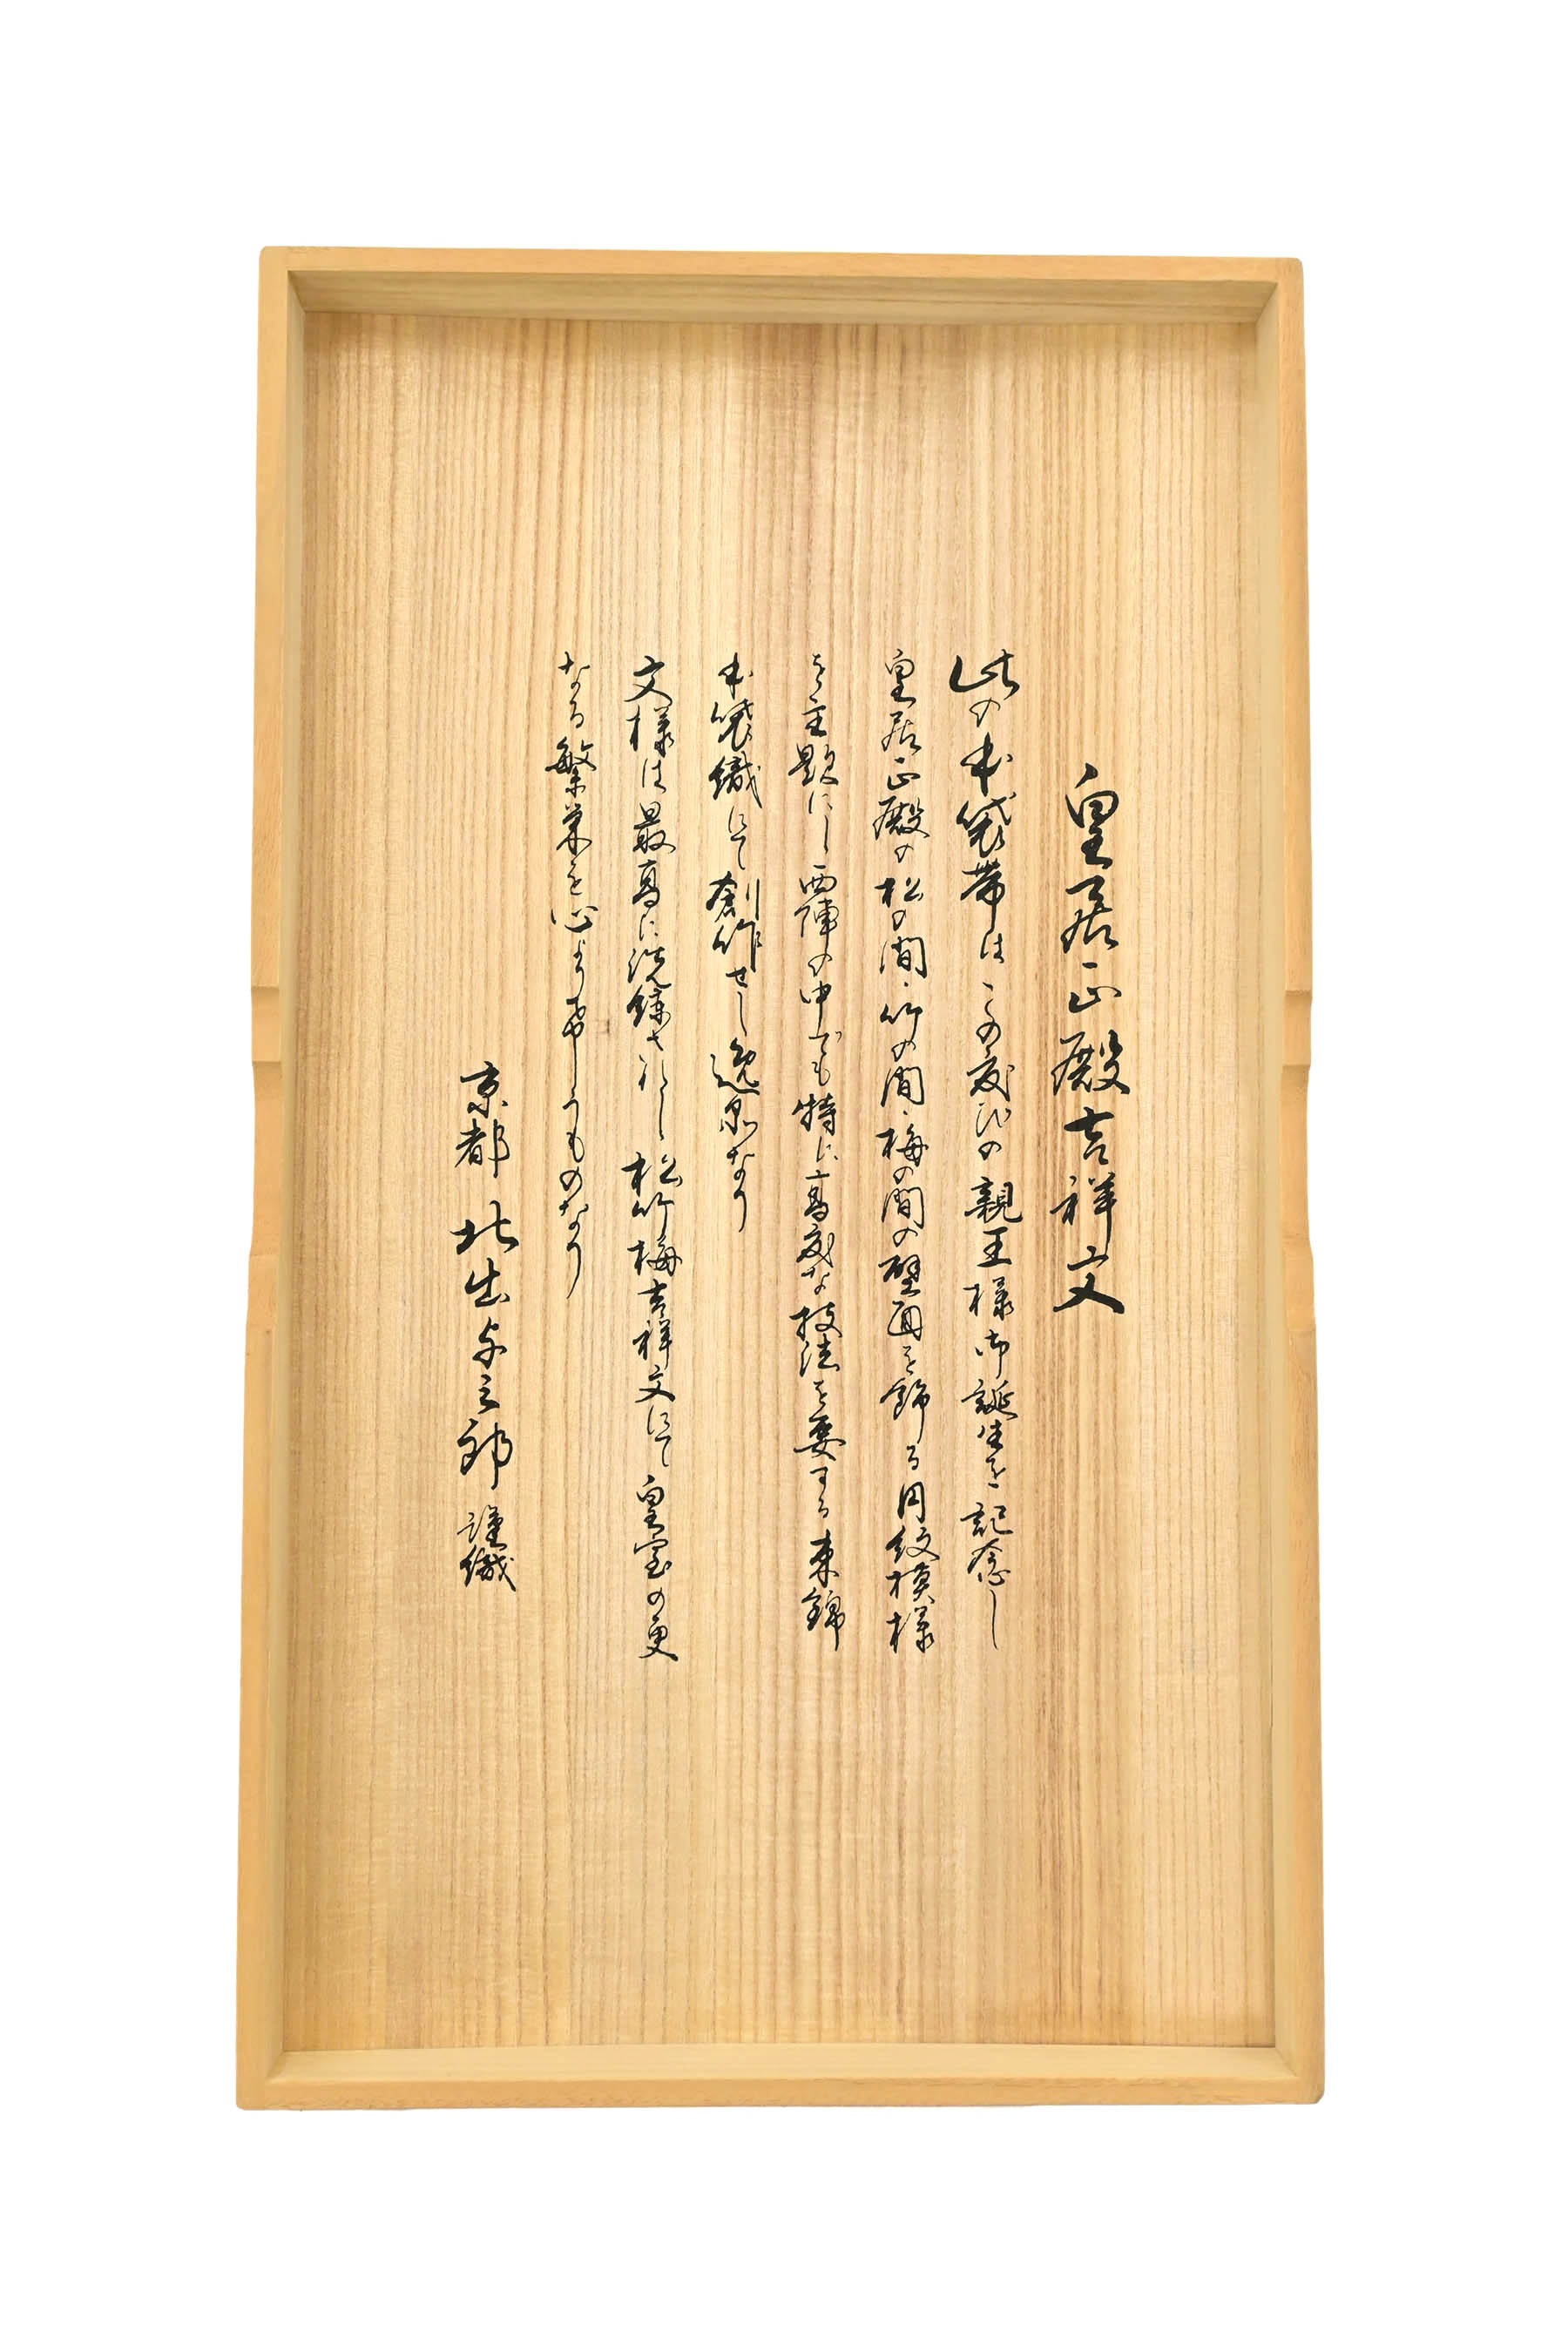 皇居正殿吉祥文
此の本袋帯はこの度びの親王様御誕生を記念し
皇居正殿の松の間、竹の間、梅の間の壁面を飾る円紋模様
を主題にし西陣の中でも特に高度な技法を要する東錦
本袋織にて創作せし逸品なり
文様は最高に洗錬されし松竹梅吉祥文にて皇室の更
なる繁栄を心より希しうものなり
京都 北出与三郎 謹織